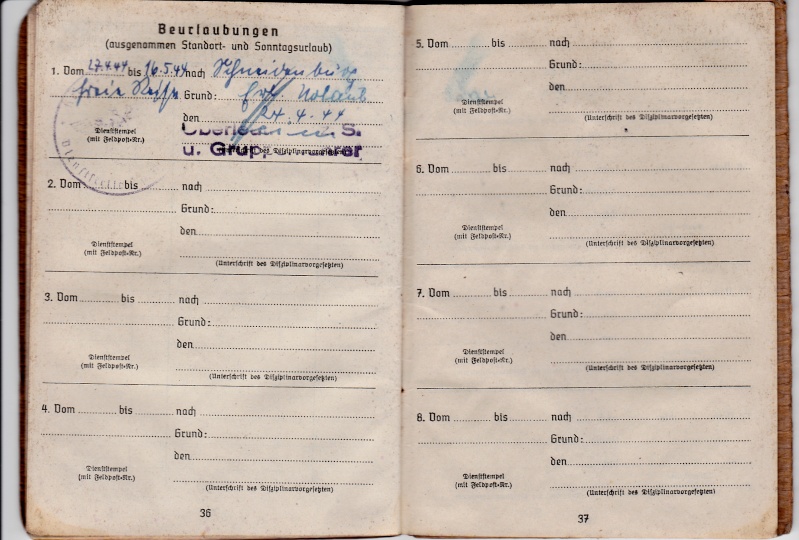 Beurlaubungen
(ausgenommen Standort- und Sonntagsurlaub)
1. Vom 27.4.44 bis 16.5.44 nach
freie Grund: Erh. Urlaub
den 24. 4. 44
Dienststempel
(mit Feldpost-Nr.)
u. Grup
(Unterschrift des Disziplinarvorgesetzten)
2. Vom bis nach
Grund:
den
Dienststempel
(mit Feldpost-Nr.)
(Unterschrift des Disziplinarvorgesetzten)
3. Vom bis nach
Grund:
den
Dienststempel
(mit Feldpost-Nr.)
(Unterschrift des Disziplinarvorgesetzten)
4. Vom bis nach
Grund:
den
Dienststempel
(mit Feldpost-Nr.)
(Unterschrift des Disziplinarvorgesetzten)
36
5. Vom bis nach
Grund:
den
Dienststempel
(mit Feldpost-Nr.)
(Unterschrift des Disziplinarvorgesetzten)
6. Vom bis nach
Grund:
den
Dienststempel
(mit Feldpost-Nr.)
(Unterschrift des Disziplinarvorgesetzten)
7. Vom bis nach
Grund:
den
Dienststempel
(mit Feldpost-Nr.)
(Unterschrift des Disziplinarvorgesetzten)
8. Vom bis nach
Grund:
den
Dienststempel
(mit Feldpost-Nr.)
(Unterschrift des Disziplinarvorgesetzten)
37